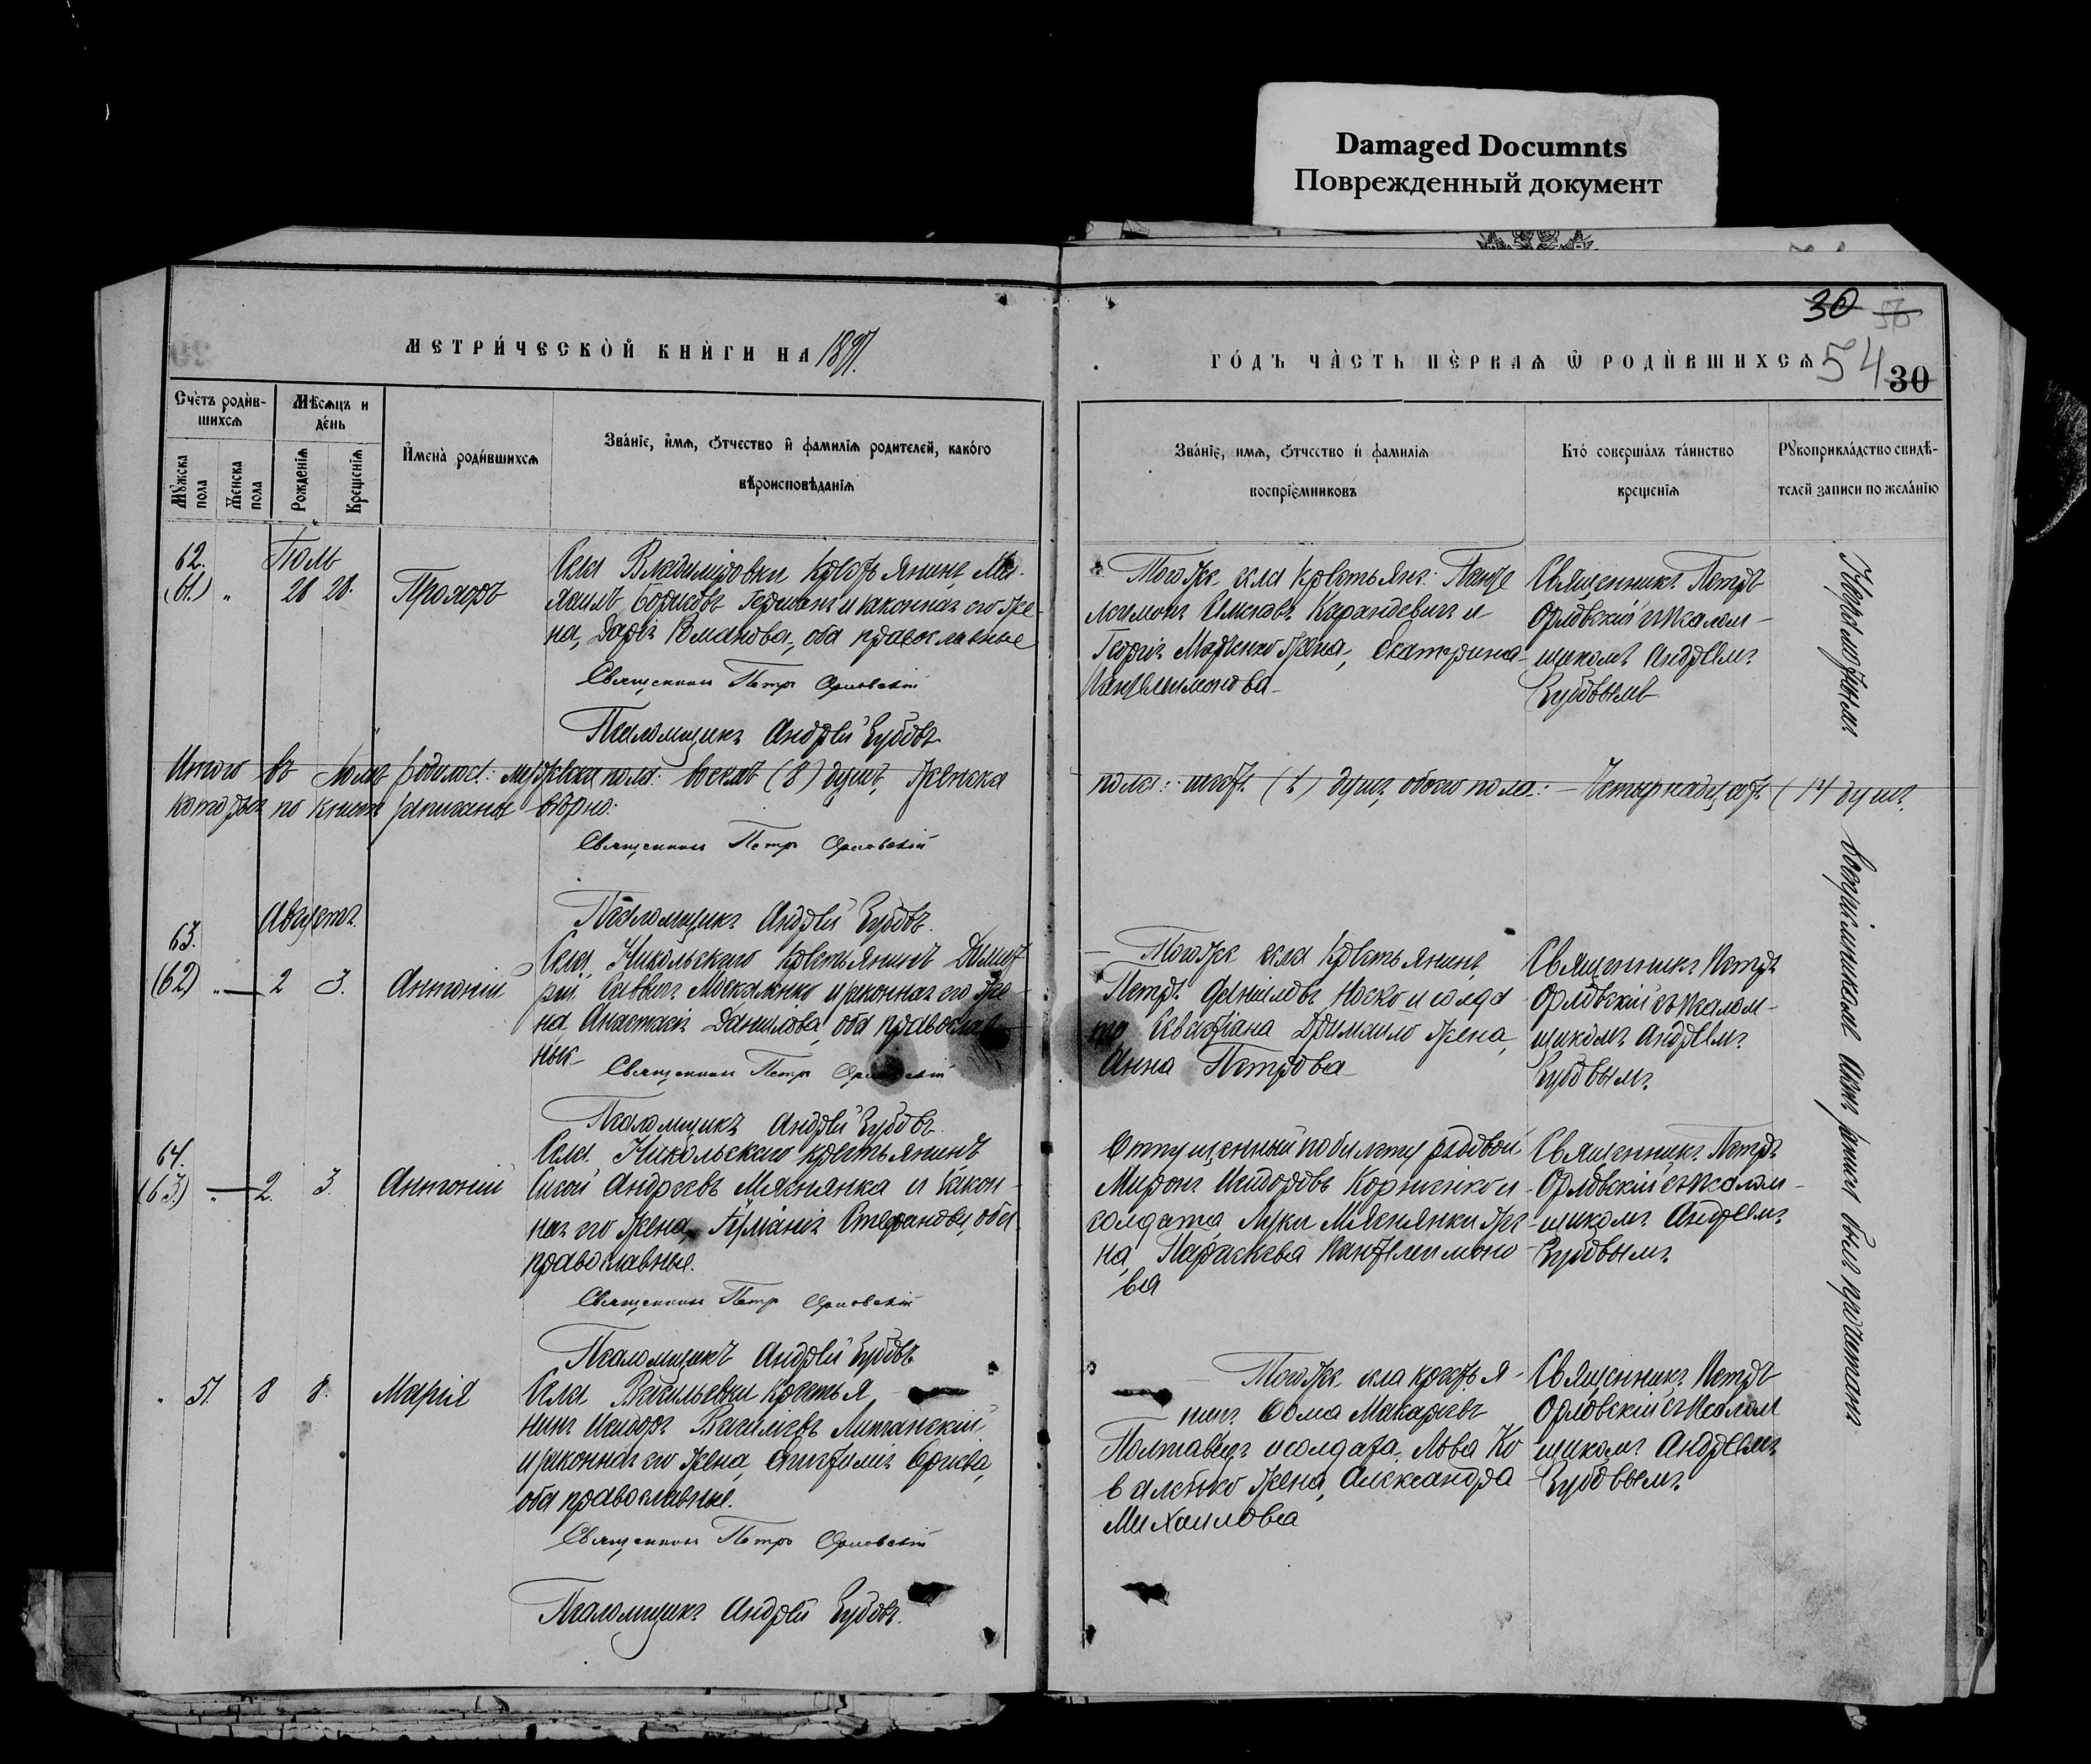 Damaged Documnts
Поврежденный документ
30 56
МЕТРИ́ЧЕСКОЙ КНИ́ГИ НА 1897.
ГО́ДЪ ЧА́СТЬ ПЕ́РВАѦ Ѡ РОДИ́ВШИХСѦ 54 30
Счетъ роди́в-
шихсѧ
Мѣсѧцъ и
де́нь
Мꙋжска пола
Женска пола
Рожденїѧ
Крещенїѧ
И҆мена̀ роди́вшихсѧ
Зва́нїе, и҆́мѧ, ѻ҆́тчество и҆ фамилїѧ родителей, како́го
вѣроисповѣданїѧ
Зва́нїе, имѧ, ѻ҆́тчество и҆ фамилїѧ
воспрїе́мниковъ
Кто́ соверша́лъ та́инство
крещенїѧ
Рꙋкоприкла́дство свидѣ́-
телей записи по жела́нїю
62.
(61.) "
Іюль
28 28.
Прохоръ
Села Владиміровки крестьянинъ Ми-
хаилъ Борисовъ Герман и законная его же-
на, Дарія Романова, оба православные
Священникъ Петръ Орловскій
Псаломщикъ Андрей Зубовъ
Тогоже села крестьян: Панте
леимонъ
Георгія Марченко жена, Екатерина
Пантелимонова
Священникъ Петръ
Орловскій съ псалом-
щикомъ Андреемъ
Зубовымъ
Итого въ Іюлѣ родилось: мужеска пола: восемь (8) душъ, женска
пола: шесть (6) душъ, обоего пола: – Четырнадцать (14 душъ.
которыя по книгѣ записаны вѣрно:
Священникъ Петръ Орловскій
Псаломщикъ Андрей Зубовъ.
Августъ.
63.
(62) " 2 3.
Антоній
Села Никольскаго крестьянинъ Димит
рій Саввинъ Москаленко и законная его же-
на Анастасія Данилова, оба православ
ные
Священникъ Петръ Орловскій
Псаломщикъ Андрей Зубовъ.
Тогоже села крестьянинъ
Петръ Даниловъ Носко и солда
та Евстафіана жена,
Анна Петрова
Священникъ Петръ
Орловскій съ псалом-
щикомъ Андреемъ
Зубовымъ.
64.
(63) " 2. 3.
Антоній
Села Никольскаго крестьянинъ
Сисой Андреевъ Мякнянка и закон-
ная его жена, Стефанова, оба
православные.
Священникъ Петръ Орловскій
Псаломщикъ Андрей Зубовъ
Отпущенный по билету рядовой
Миронъ Исидоровъ Корниенко и
солдата Луки Мякнянки же-
на, Параскева Пантелеимоно
ва
Священникъ Петръ
Орловскій съ псалом-
щикомъ Андреемъ
Зубовымъ.
" 51. 8 8.
Марія
Села Васильевки крестья
нинъ Исидоръ Василіевъ Литанскій
и законная его жена,
оба православные.
Священникъ Петръ Орловскій
Псаломщикъ Андрей Зубовъ.
Тогоже села крестья-
нинъ Ѳома Макаріевъ
Полтавецъ и солдата Льва Ко
валенко жена, Александра
Михаилова
Священникъ Петръ
Орловскій съ псалом
щикомъ Андреемъ
Зубовымъ.
Неграмотнымъ воспріемникамъ актъ записи былъ прочитанъ